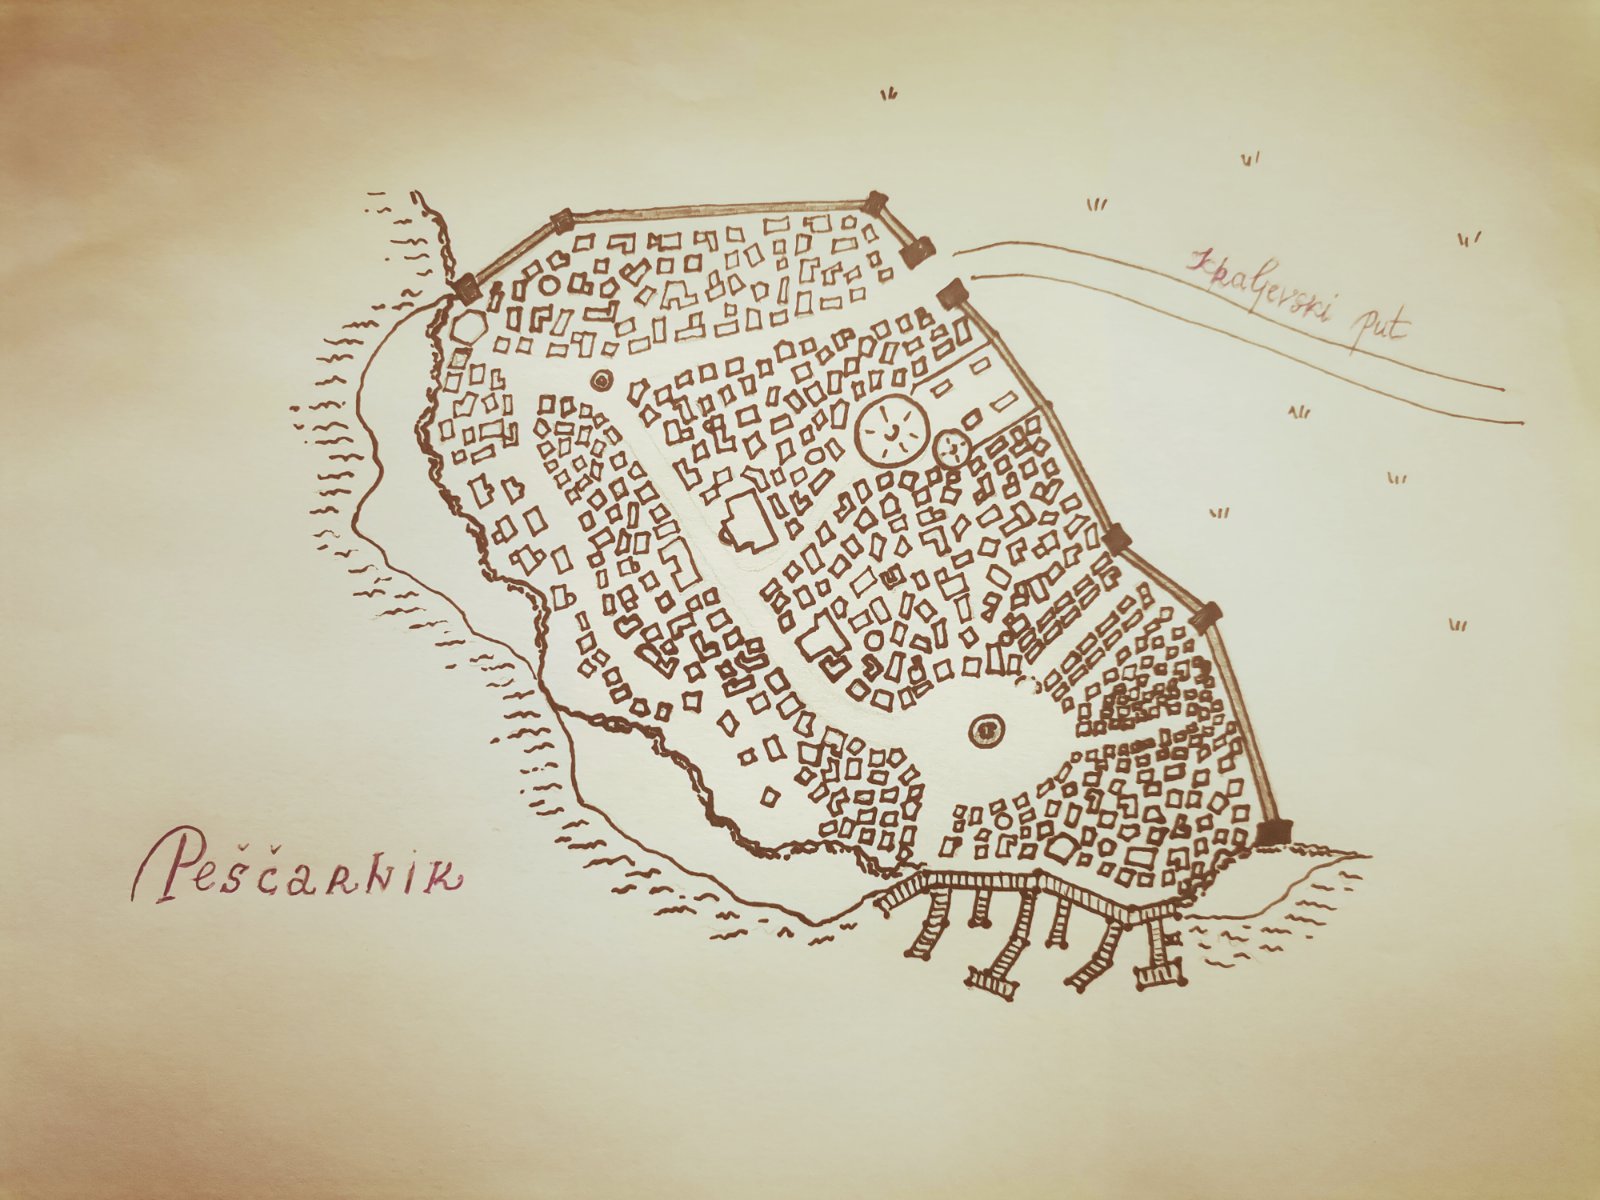 Kraljevski put
Peščarnik